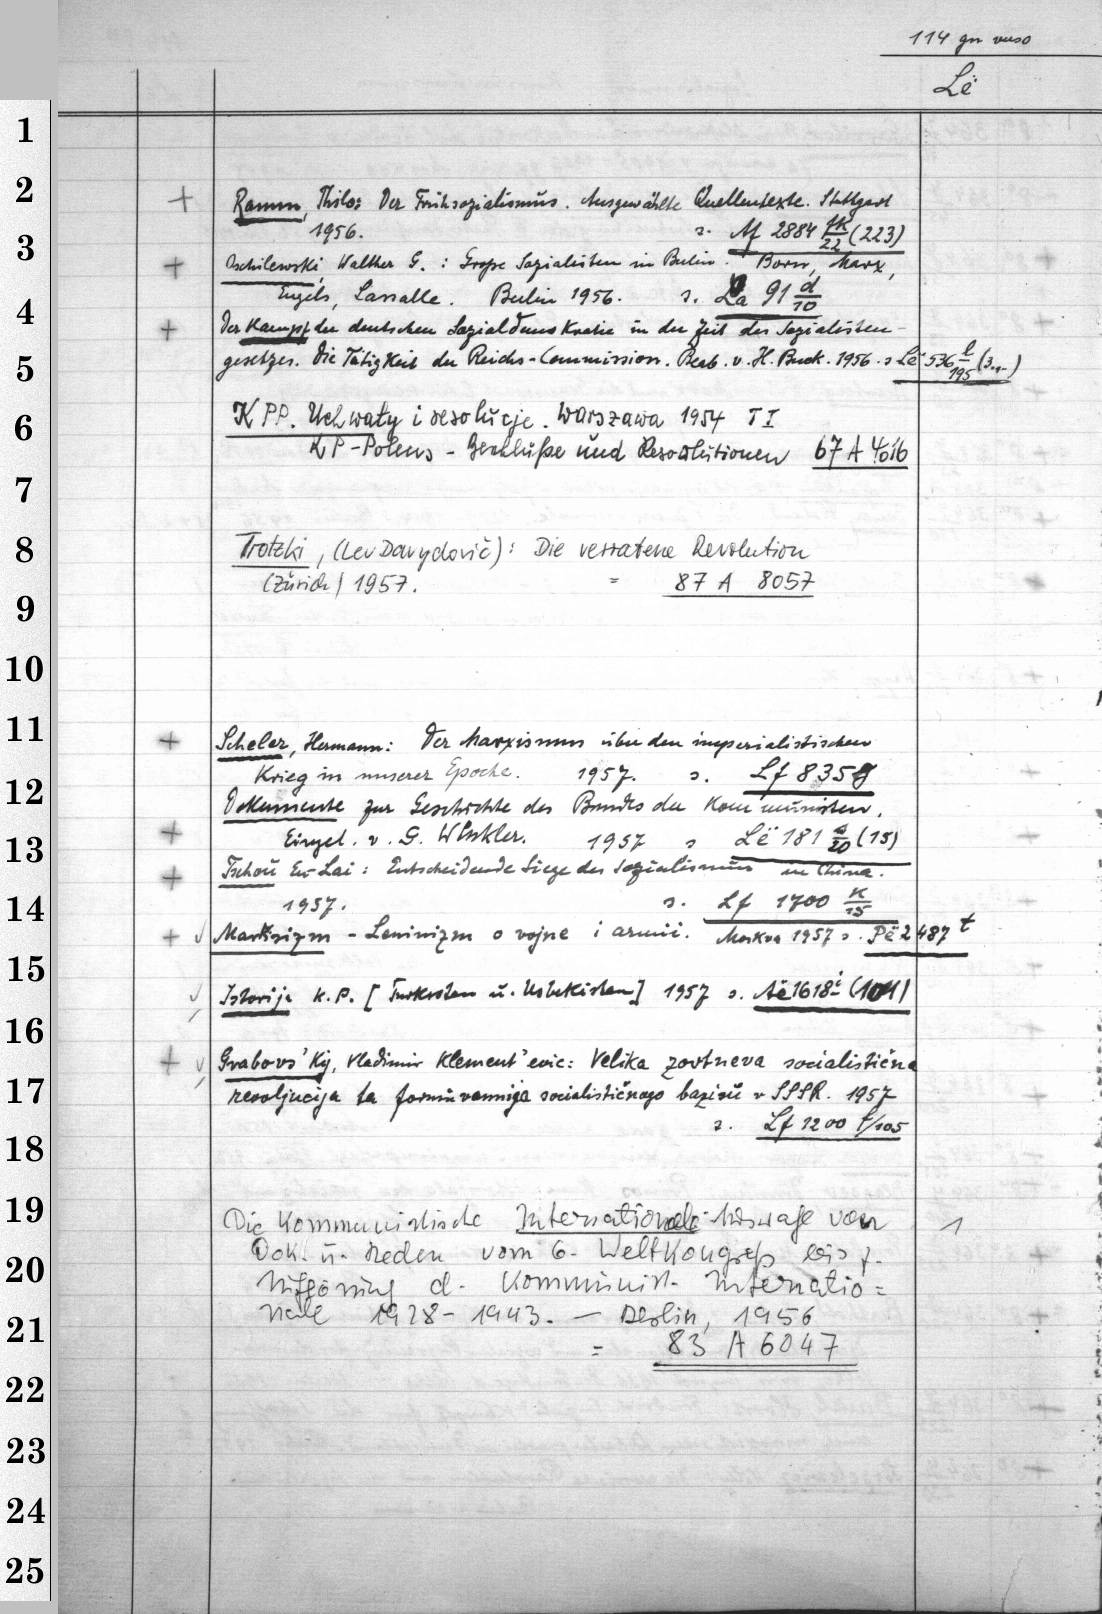 114
Lë
1
2
+ Ramm, Thilo: Der Frühsozialismus. Ausgewählte Quellentexte. Stuttgart
1956. s. Af 2884 fk/22 (223)
3
+ Oschilewski, Walther G.: Große Sozialisten in Berlin. Born, Marx,
Engels, Lassalle. Berlin 1956. s. La 91 d/10
4
+ Der Kampf der deutschen Sozialdemokratie in der Zeit des Sozialisten-
gesetzes. Die Tätigkeit der Reichs-Commission. Bearb. v. H. Buck. 1956. s Lë 536 l/195 (3..)
5
6
KPP. Uchwały i rezolucje. Warszawa 1954 T I
KP-Polens - Beschlüße und Resolutionen 67 A 4016
7
8
Trotzki, (Lev Davydovič): Die verratene Revolution
(Zürich) 1957. = 87 A 8057
9
10
11
+ Scheler, Hermann: Der Marxismus über den imperialistischen
Krieg in unserer Epoche. 1957. s. Lf 835
12
Dokumente zur Geschichte des Bundes der Kommunisten.
+ Eingel. v. G. Winkler. 1957 s Lë 181 a/20 (15)
13
+ Tschou En-Lai: Entscheidende Siege des Sozialismus in China.
1957. s. Lf 1700 K/15
14
+ √ Marksizm - Leninizm o vojne i armii. Moskva 1957 s. Pë 2487 t
15
√ Istorija k. P. [Turkestan u. Usbekistan] 1957 s. Aë 1618 i (101)
16
+ √ Grabovs'kij, Vladimir Klement'evic: Velika zovtneva socialistična
17
revoljucija ta formuvannija socialističnogo bazisu v SSSR. 1957
s. Lf 1200 t/105
18
19
Die Kommunistische Internationale. Ausw. von 1
Dok. u. Reden vom 6. Weltkongreß bis z.
20
Auflösung d. Kommunist. Internatio=
nale 1928-1943. — Berlin, 1956
21
= 83 A 6047
22
23
24
25